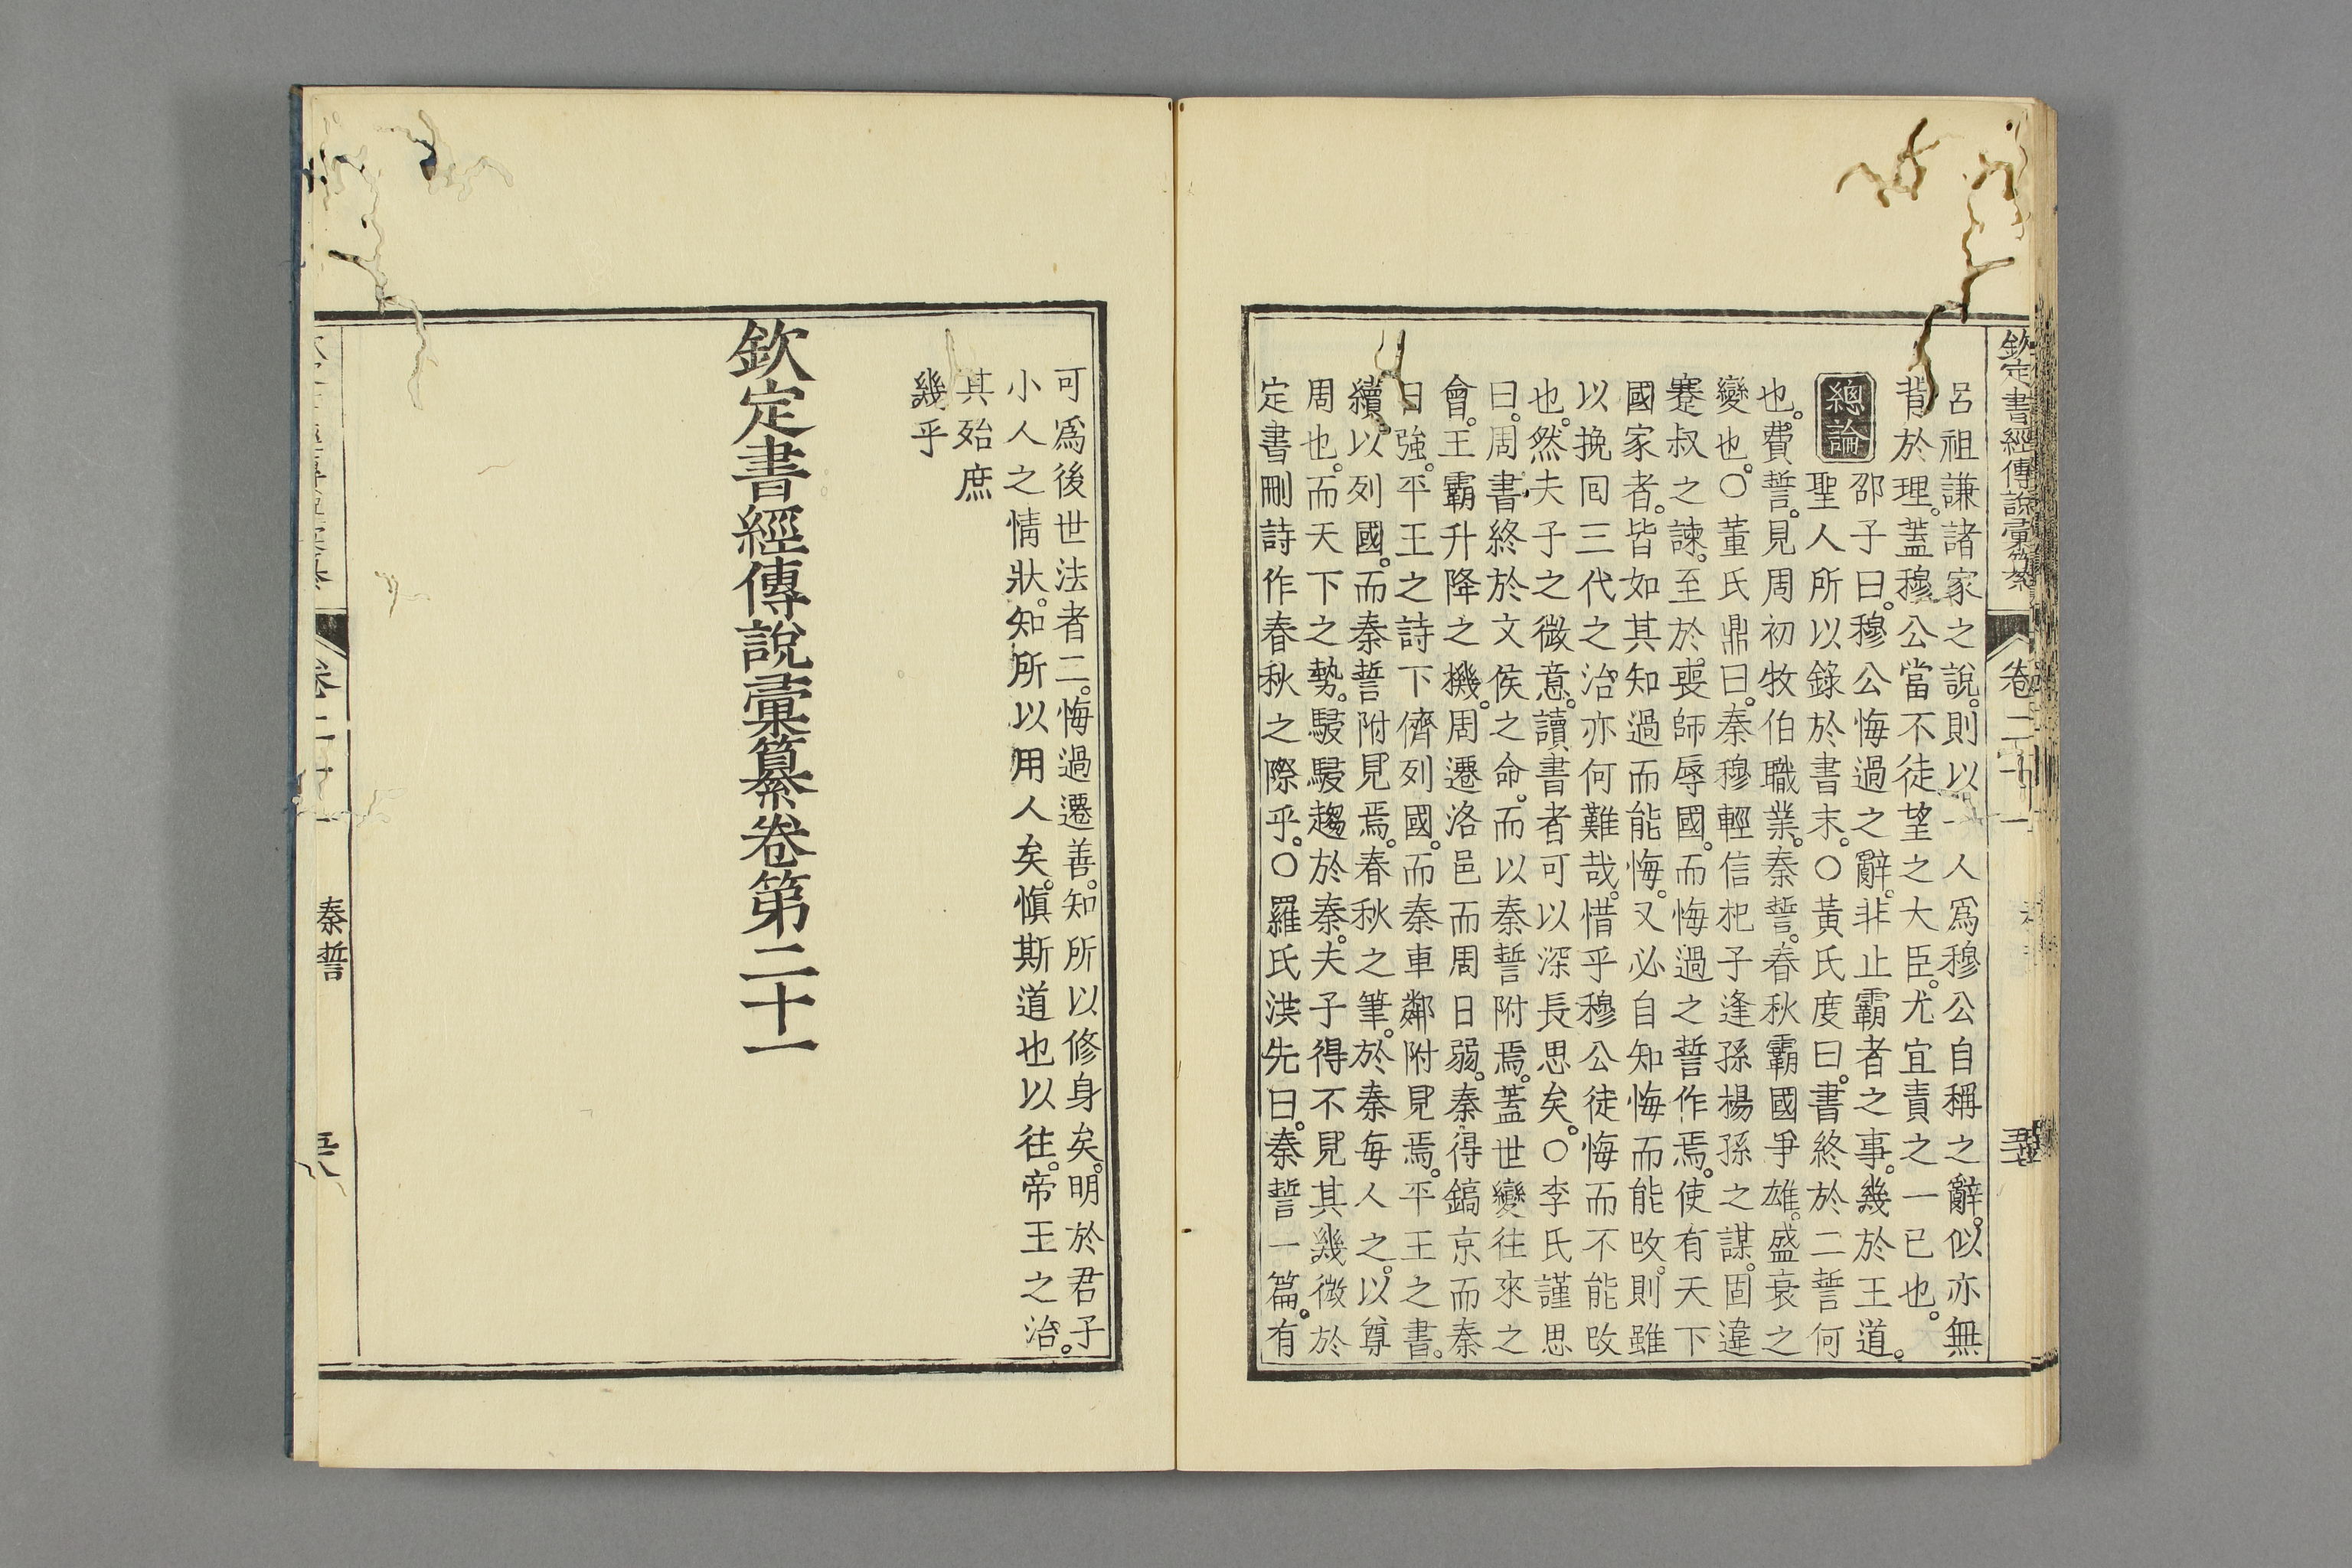 欽定書經傳說彙纂
卷二十一
呂祖謙諸家之說則以一人爲穆公自稱之辭似亦無
背於理蓋穆公當不徒望之大臣尤宜責之一已也
總論
邵子曰穆公悔過之辭非止霸者之事幾於王道
聖人所以錄於書末〇黃氏度曰書終於二誓何
也費誓見周初牧伯職業秦誓春秋霸國爭雄盛衰之
變也〇董氏鼎曰秦穆輕信杞子逢孫楊孫之謀固違
蹇叔之諫至於喪師辱國而悔過之誓作焉使有天下
國家者皆如其知過而能悔又必自知悔而能改則雖
以挽囘三代之治亦何難哉惜乎穆公徒悔而不能改
也然夫子之微意讀書者可以深長思矣〇李氏謹思
曰周書終於文侯之命而以秦誓附焉蓋世變往來之
會王霸升降之機周遷洛邑而周日弱秦得鎬京而秦
日強平王之詩下儕列國而秦車鄰附見焉平王之書
續以列國而秦誓附見焉春秋之筆於秦每人之以尊
周也而天下之勢駸駸趨於秦夫子得不見其幾微於
定書刪詩作春秋之際乎〇羅氏洪先曰秦誓一篇有
可爲後世法者二悔過遷善知所以修身矣明於君子
小人之情狀知所以用人矣愼斯道也以往帝王之治
其殆庶
幾乎
欽定書經傳說彙纂卷第二十一
卷二十一
秦誓
五十八